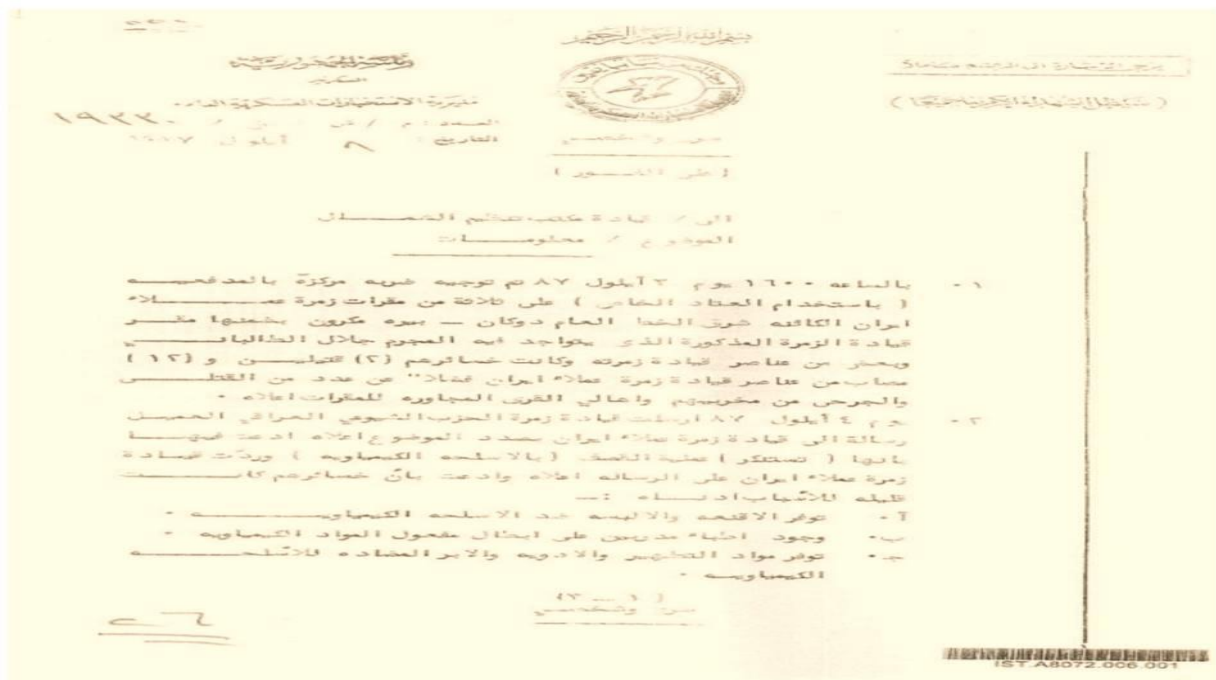 بسم الله الرحمن الرحيم
رئاسة الجمهورية
السكرتير
مديرية الاستخبارات العسكرية العامة
العدد : م / ش / ١٩٣٣٠
التاريخ : ٨ أيلول ١٩٨٧
يرجى الاشارة الى الرقم
سري وشخصي
( على الفور )
الى / قيادة مكتب تنظيم الشمال
الموضوع / معلومات
١ - بالساعه ١٦٠٠ يوم ٣ أيلول ٨٧ تم توجيه ضربه مركزة بالمدفعيه
( باستخدام العتاد الخاص ) على ثلاثة من مقرات زمرة عملاء
ايران الكائنه شرق الخط العام دوكان – بيره مكرون بضمنها مقر
قيادة الزمرة المذكورة الذي يتواجد فيه المجرم جلال الطالباني
وبعض من عناصر قيادة زمرته وكانت خسائرهم (٢) قتيلين و (١٢)
مصاب من عناصر قيادة زمرة عملاء ايران فضلا" عن عدد من القتلى
والجرحى من مخربيهم واهالي القرى المجاوره للمقرات اعلاه ٠
٢ - يوم ٤ أيلول ٨٧ ارسلت قيادة زمرة الحزب الشيوعي العراقي العميل
رسالة الى قيادة زمرة عملاء ايران بصدد الموضوع اعلاه ادعت فيها
بانها ( تستنكر ) عملية القصف ( بالاسلحه الكيمياويه ) وردت قيادة
زمرة عملاء ايران على الرساله اعلاه وادعت بان خسائرهم كانت
قليله للاسباب ادناه :ـ
آ - توفر الاقنعه والالبسه ضد الاسلحه الكيمياويه ٠
ب - وجود اطباء مدربين على ابطال مفعول المواد الكيمياويه ٠
جـ - توفر مواد التطهير والادويه والابر المضاده للاسلحه
الكيمياويه ٠
( ١ – ٣ )
سري وشخصي
IST.A8072.006.001